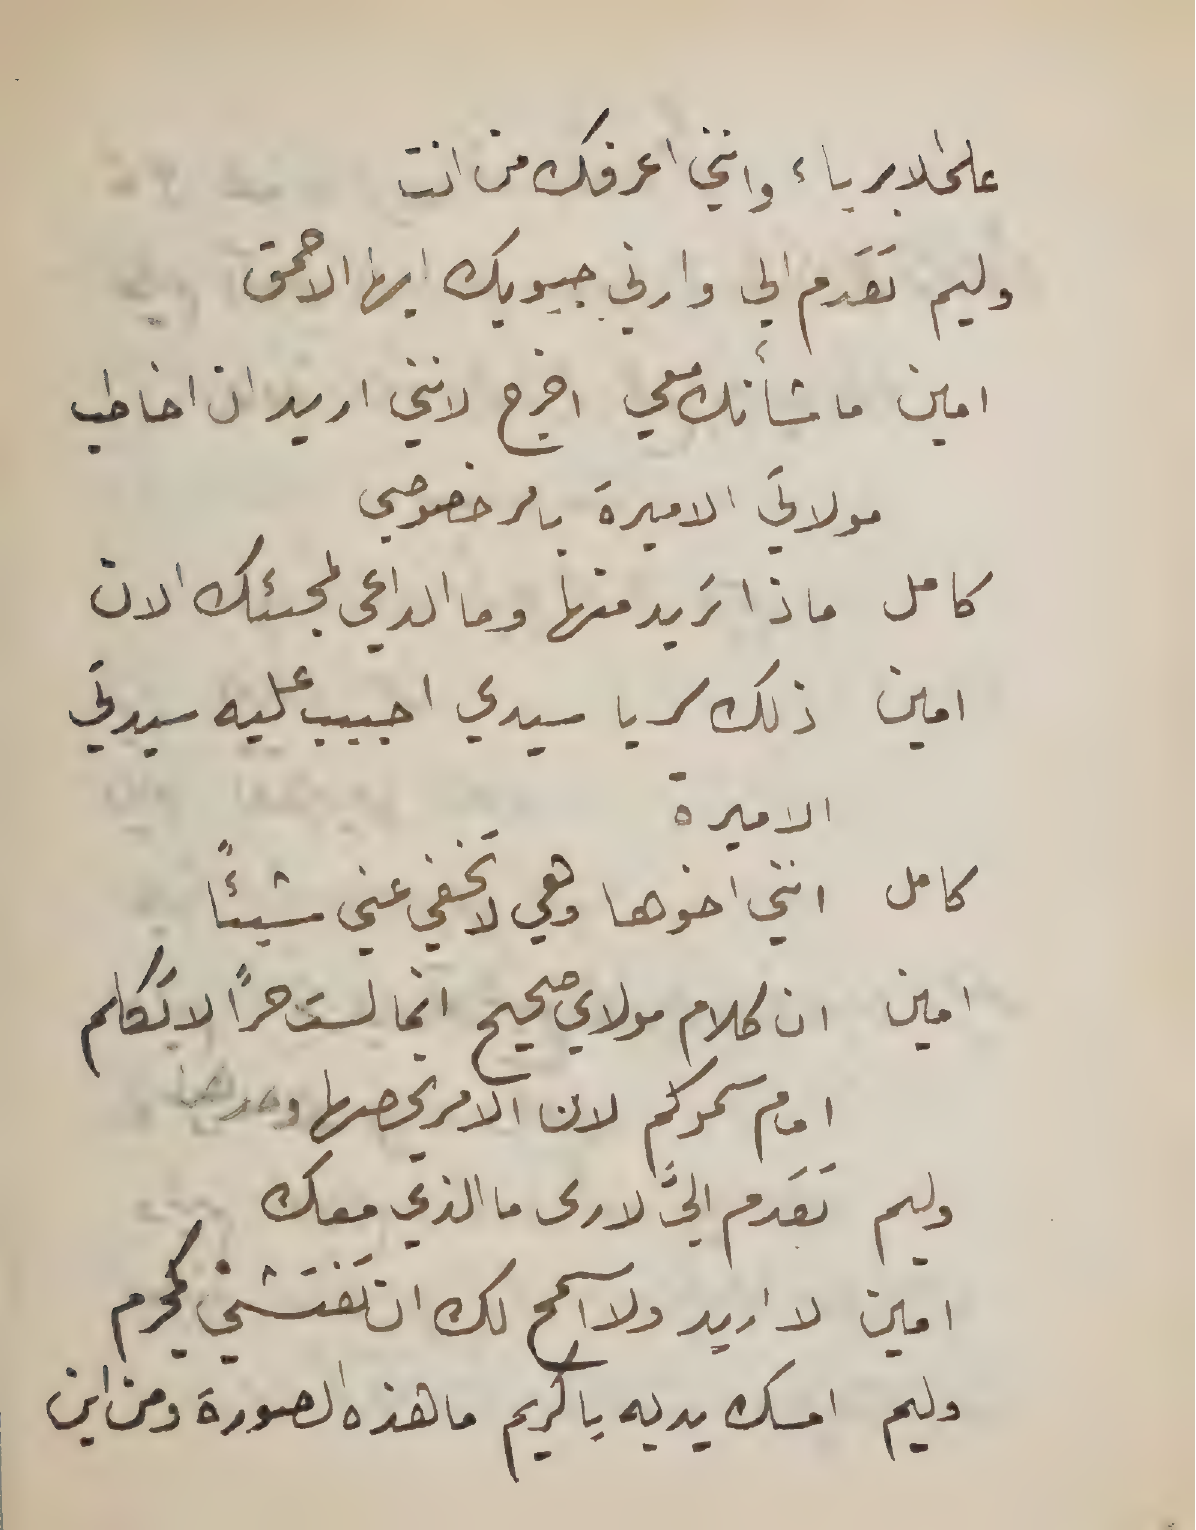 على الابرياء وانني اعرفك من انت
وليم تقدم الي وارني جيوبك ايها الاحمق
امين ما شأنك معي اخرج لانني اريد ان اخاطب
مولاتي الاميرة بامر خصوصي
كامل ماذا تريد منها وما الداعي لمجيئك الان
امين ذلك سر يا سيدي اجيب عليه سيدتي
الاميرة
كامل انني اخوها وهي لا تخفي عني شيئًا
امين ان كلام مولاي صحيح انما لست حرًا لاتكلم
امام سموكم لان الامر يخصها وحدها
وليم تقدم اليَّ لارى ما الذي معك
امين لا اريد ولا اسمح لك ان تفتشني كمجرم
وليم امسك يديه يا كريم ما هذه الصورة ومن اين